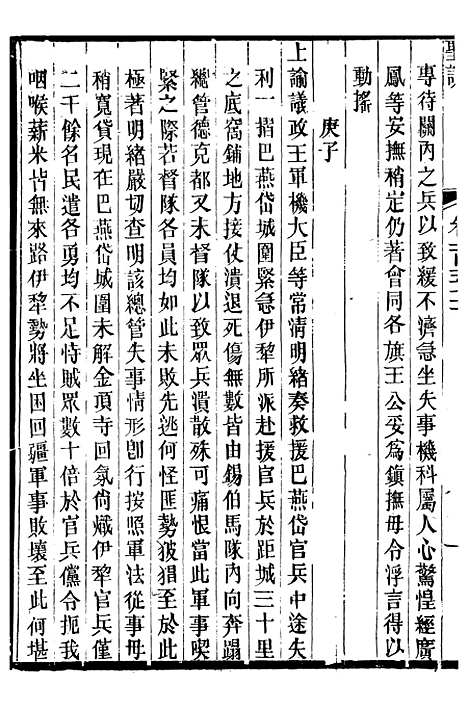 聖訓
卷一百五十二
專待關內之兵以致緩不濟急坐失事機科屬人心驚惶經廣
鳳等安撫稍定仍著會同各旗王公妥爲鎮撫毋令浮言得以
動搖
庚子
上諭議政王軍機大臣等常清明緒奏救援巴燕岱官兵中途失
利一摺巴燕岱城圍緊急伊犂所派赴援官兵於距城三十里
之底窩鋪地方接仗潰退死傷無數皆由錫伯馬隊內向奔蹋
繼管德克都又未督隊以致眾兵潰散殊可痛恨當此軍事喫
緊之際若督隊各員均如此未敗先逃何怪匪勢披猖至於此
極著明緒嚴切查明該總管失事情形卽行按照軍法從事毋
稍寬貸現在巴燕岱城圍未解金頂寺回氛尚熾伊犂官兵僅
二千餘名民遣各勇均不足恃賊眾數十倍於官兵儻令扼我
咽喉薪米皆無來路伊犂勢將坐困回疆軍事敗壞至此何堪